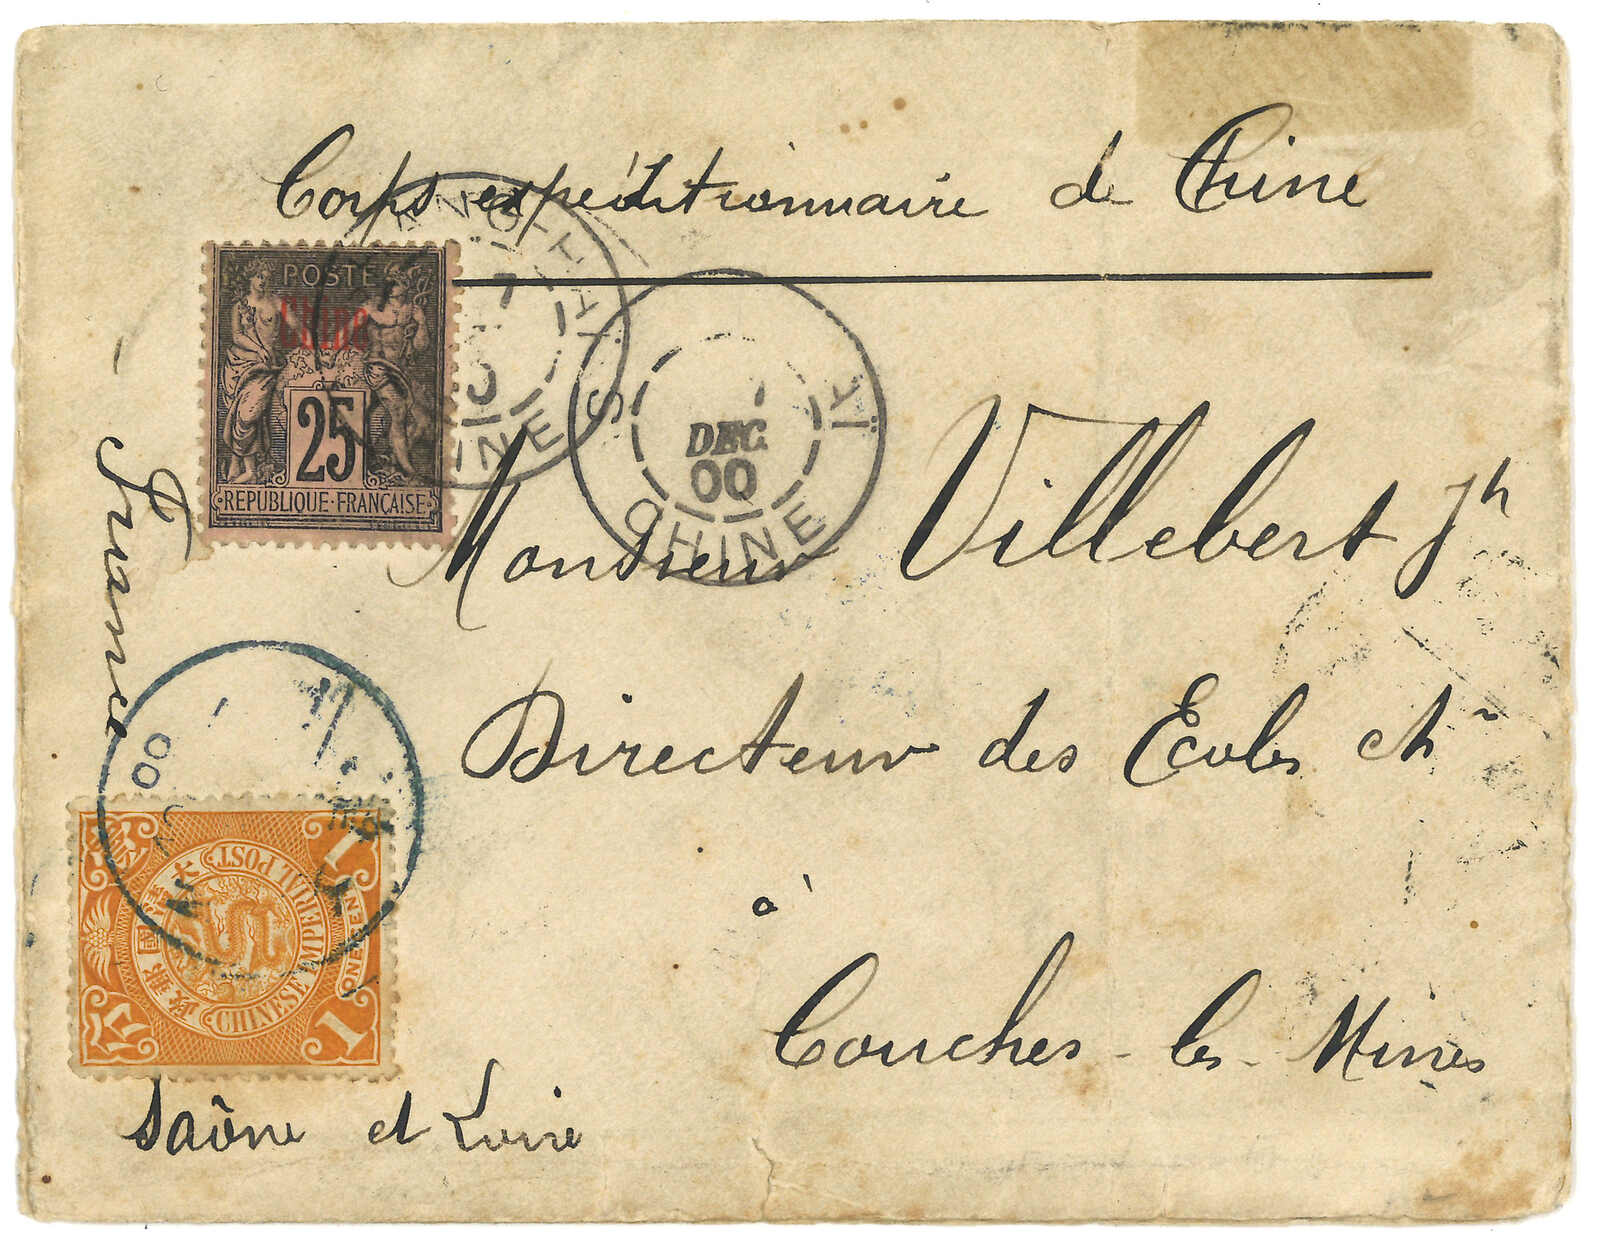 Corps expéditionnaire de Chine
POSTE
Chine
25
REPUBLIQUE·FRANÇAISE
CHINE
DEC
00
CHINE
France
Monsieur Villebert Jh
Directeur des Ecoles chn
à
Couches-les-Mines
Saône et Loire
00
大清國郵政
CHINESE IMPERIAL POST
ONE CENT
1
1